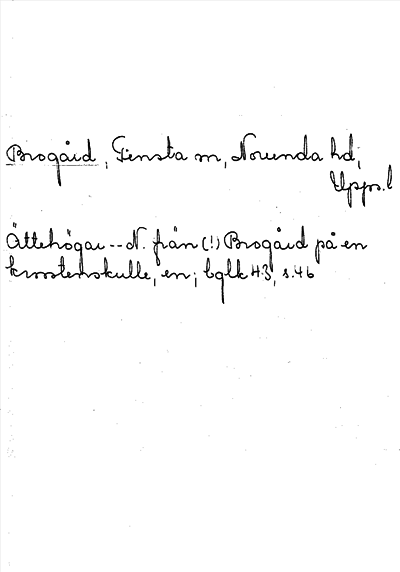 Brogård, Tensta sn, Norunda hd,
Upps. l
Ättehögar -- N. från (!) Brogård på en
krosstenskulle, en; bglk 43, s. 46